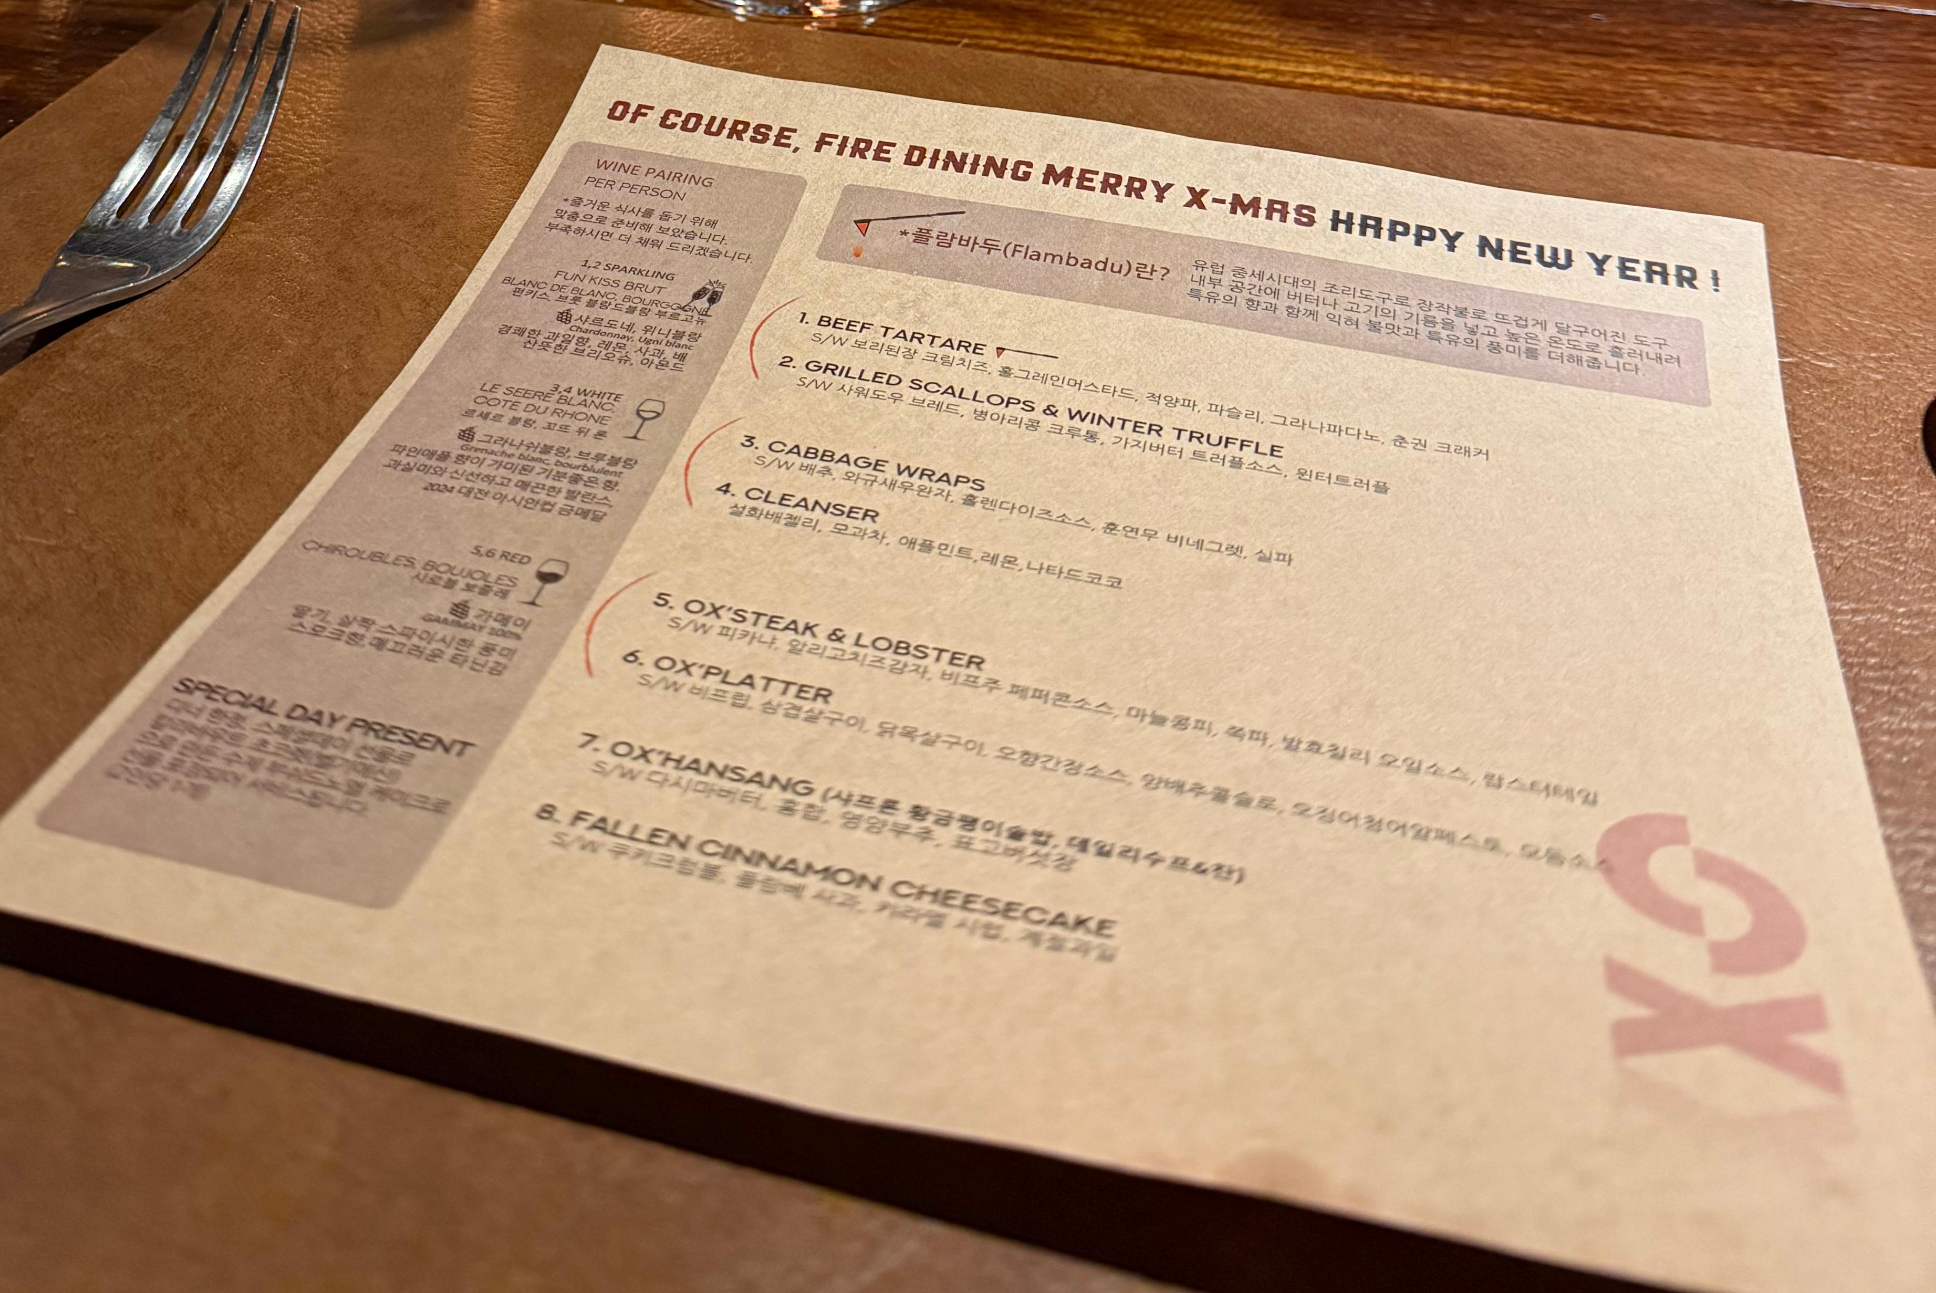 OF COURSE, FIRE DINING MERRY X-MAS HAPPY NEW YEAR !
WINE PAIRING
PER PERSON
*즐거운 식사를 돕기 위해
맞춤으로 준비해 보았습니다.
부족하시면 더 채워 드리겠습니다.
1,2 SPARKLING
FUN KISS BRUT
BLANC DE BLANC, BOURGOGNE
펀키스, 브룻 블랑드블랑 부르고뉴
샤르도네, 위니블랑
Chardonnay, Ugni blanc
경쾌한 과일향, 레몬, 사과, 배
산뜻한 브리오슈, 아몬드
3,4 WHITE
LE SEERE BLANC,
COTE DU RHONE
르세르 블랑, 꼬뜨 뒤 론
그라나쉬블랑, 브루블랑
Grenache blanc, bourblulent
파인애플 향이 가미된 기분좋은향,
과실미와 신선하고 매끈한 발란스,
2024 대전 아시안컵 금메달
5,6 RED
CHIROUBLES, BOUJOLES
시로블 보졸레
가메이
GAMMAY 100%
딸기, 살짝 스파이시한 풍미
스모크향, 매끄러운 탄닌감
SPECIAL DAY PRESENT
*플람바두(Flambadu)란?
유럽 중세시대의 조리도구로 장작불로 뜨겁게 달구어진 도구
내부 공간에 버터나 고기의 기름을 넣고 높은 온도로 흘러내려
특유의 향과 함께 익혀 불맛과 특유의 풍미를 더해줍니다.
1. BEEF TARTARE
S/W 보리된장 크림치즈, 홀그레인머스타드, 적양파, 파슬리, 그라나파다노, 춘권 크래커
2. GRILLED SCALLOPS & WINTER TRUFFLE
S/W 사워도우 브레드, 병아리콩 크루통, 가지버터 트러플소스, 윈터트러플
3. CABBAGE WRAPS
S/W 배추, 와규새우완자, 홀렌다이즈소스, 훈연무 비네그렛, 실파
4. CLEANSER
설화배젤리, 모과차, 애플민트,레몬,나타드코코
5. OX'STEAK & LOBSTER
S/W 피카냐, 알리고치즈감자, 비프주 페퍼콘소스, 마늘콩피, 쪽파, 발효칠리 오일소스, 랍스터테일
6. OX'PLATTER
S/W 비프립, 삼겹살구이, 닭목살구이, 오향간장소스, 양배추콜슬로, 오징어청어알페스토, 모둠소스
7. OX'HANSANG (샤프론 황금팽이솥밥, 데일리수프&찬)
S/W 다시마버터, 홍합, 영양부추, 표고버섯장
8. FALLEN CINNAMON CHEESECAKE
S/W 쿠키크럼블, 플람베 사과, 카라멜 시럽, 계절과일
OX